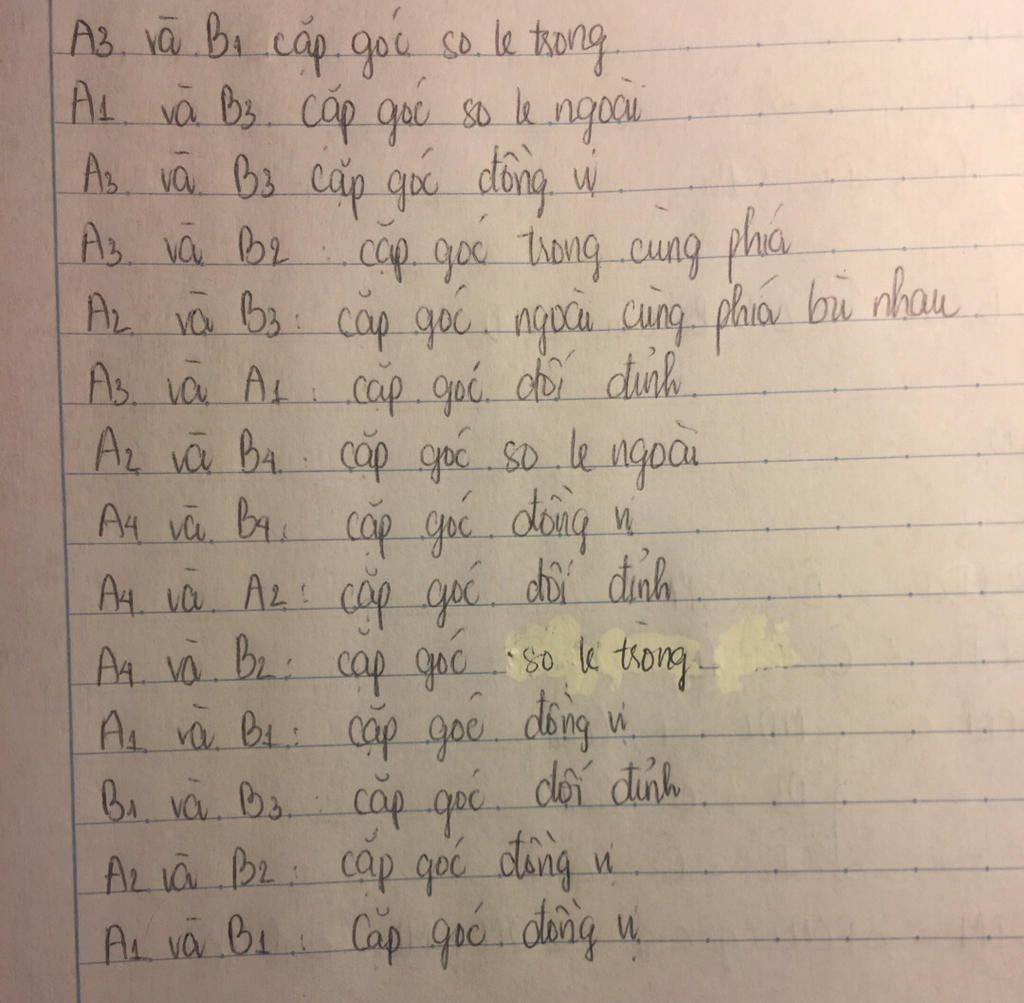 A3 và B1 cặp góc so le trong
A1 và B3 cặp góc so le ngoài
A3 và B3 cặp góc đồng vị
A3 và B2 : cặp góc trong cùng phía
A2 và B3 : cặp góc ngoài cùng phía bù nhau
A3 và A1 : cặp góc đối đỉnh
A2 và B4 cặp góc so le ngoài
A4 và B4 : cặp góc đồng vị
A4 và A2 : cặp góc đối đỉnh
A4 và B2 : cặp góc so le trong
A1 và B1 : cặp góc đồng vị
B1 và B3 : cặp góc đối đỉnh
A2 và B2 : cặp góc đồng vị
A1 và B1 : Cặp góc đồng vị